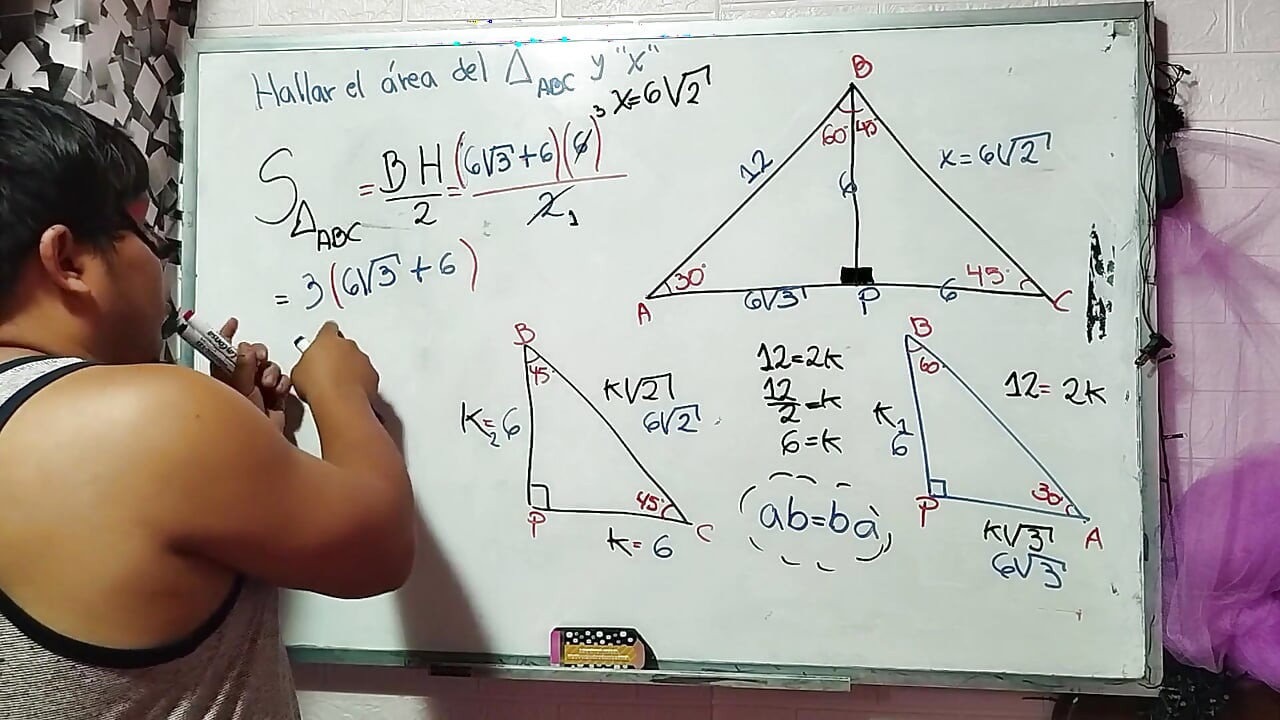 Hallar el área del Δ ABC y "x"
x=6√2
S Δ ABC = BH/2 = (6√3+6)(6)³/2₁
= 3(6√3+6)
B
60° 45°
12
6
x=6√2
30°
45°
A
6√3
P
6
C
B
45°
K=6
K√2
6√2
45°
P
K=6
C
12=2K
12/2=K
6=K
ab=ba
B
60°
K
6
12=2K
30°
P
K√3
6√3
A